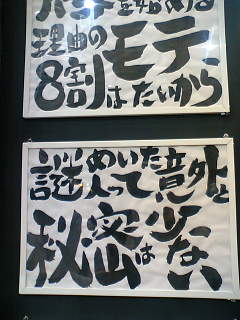 を始める
理由の
8割はモテたいから
謎めいた人って意外と
秘密は少ない